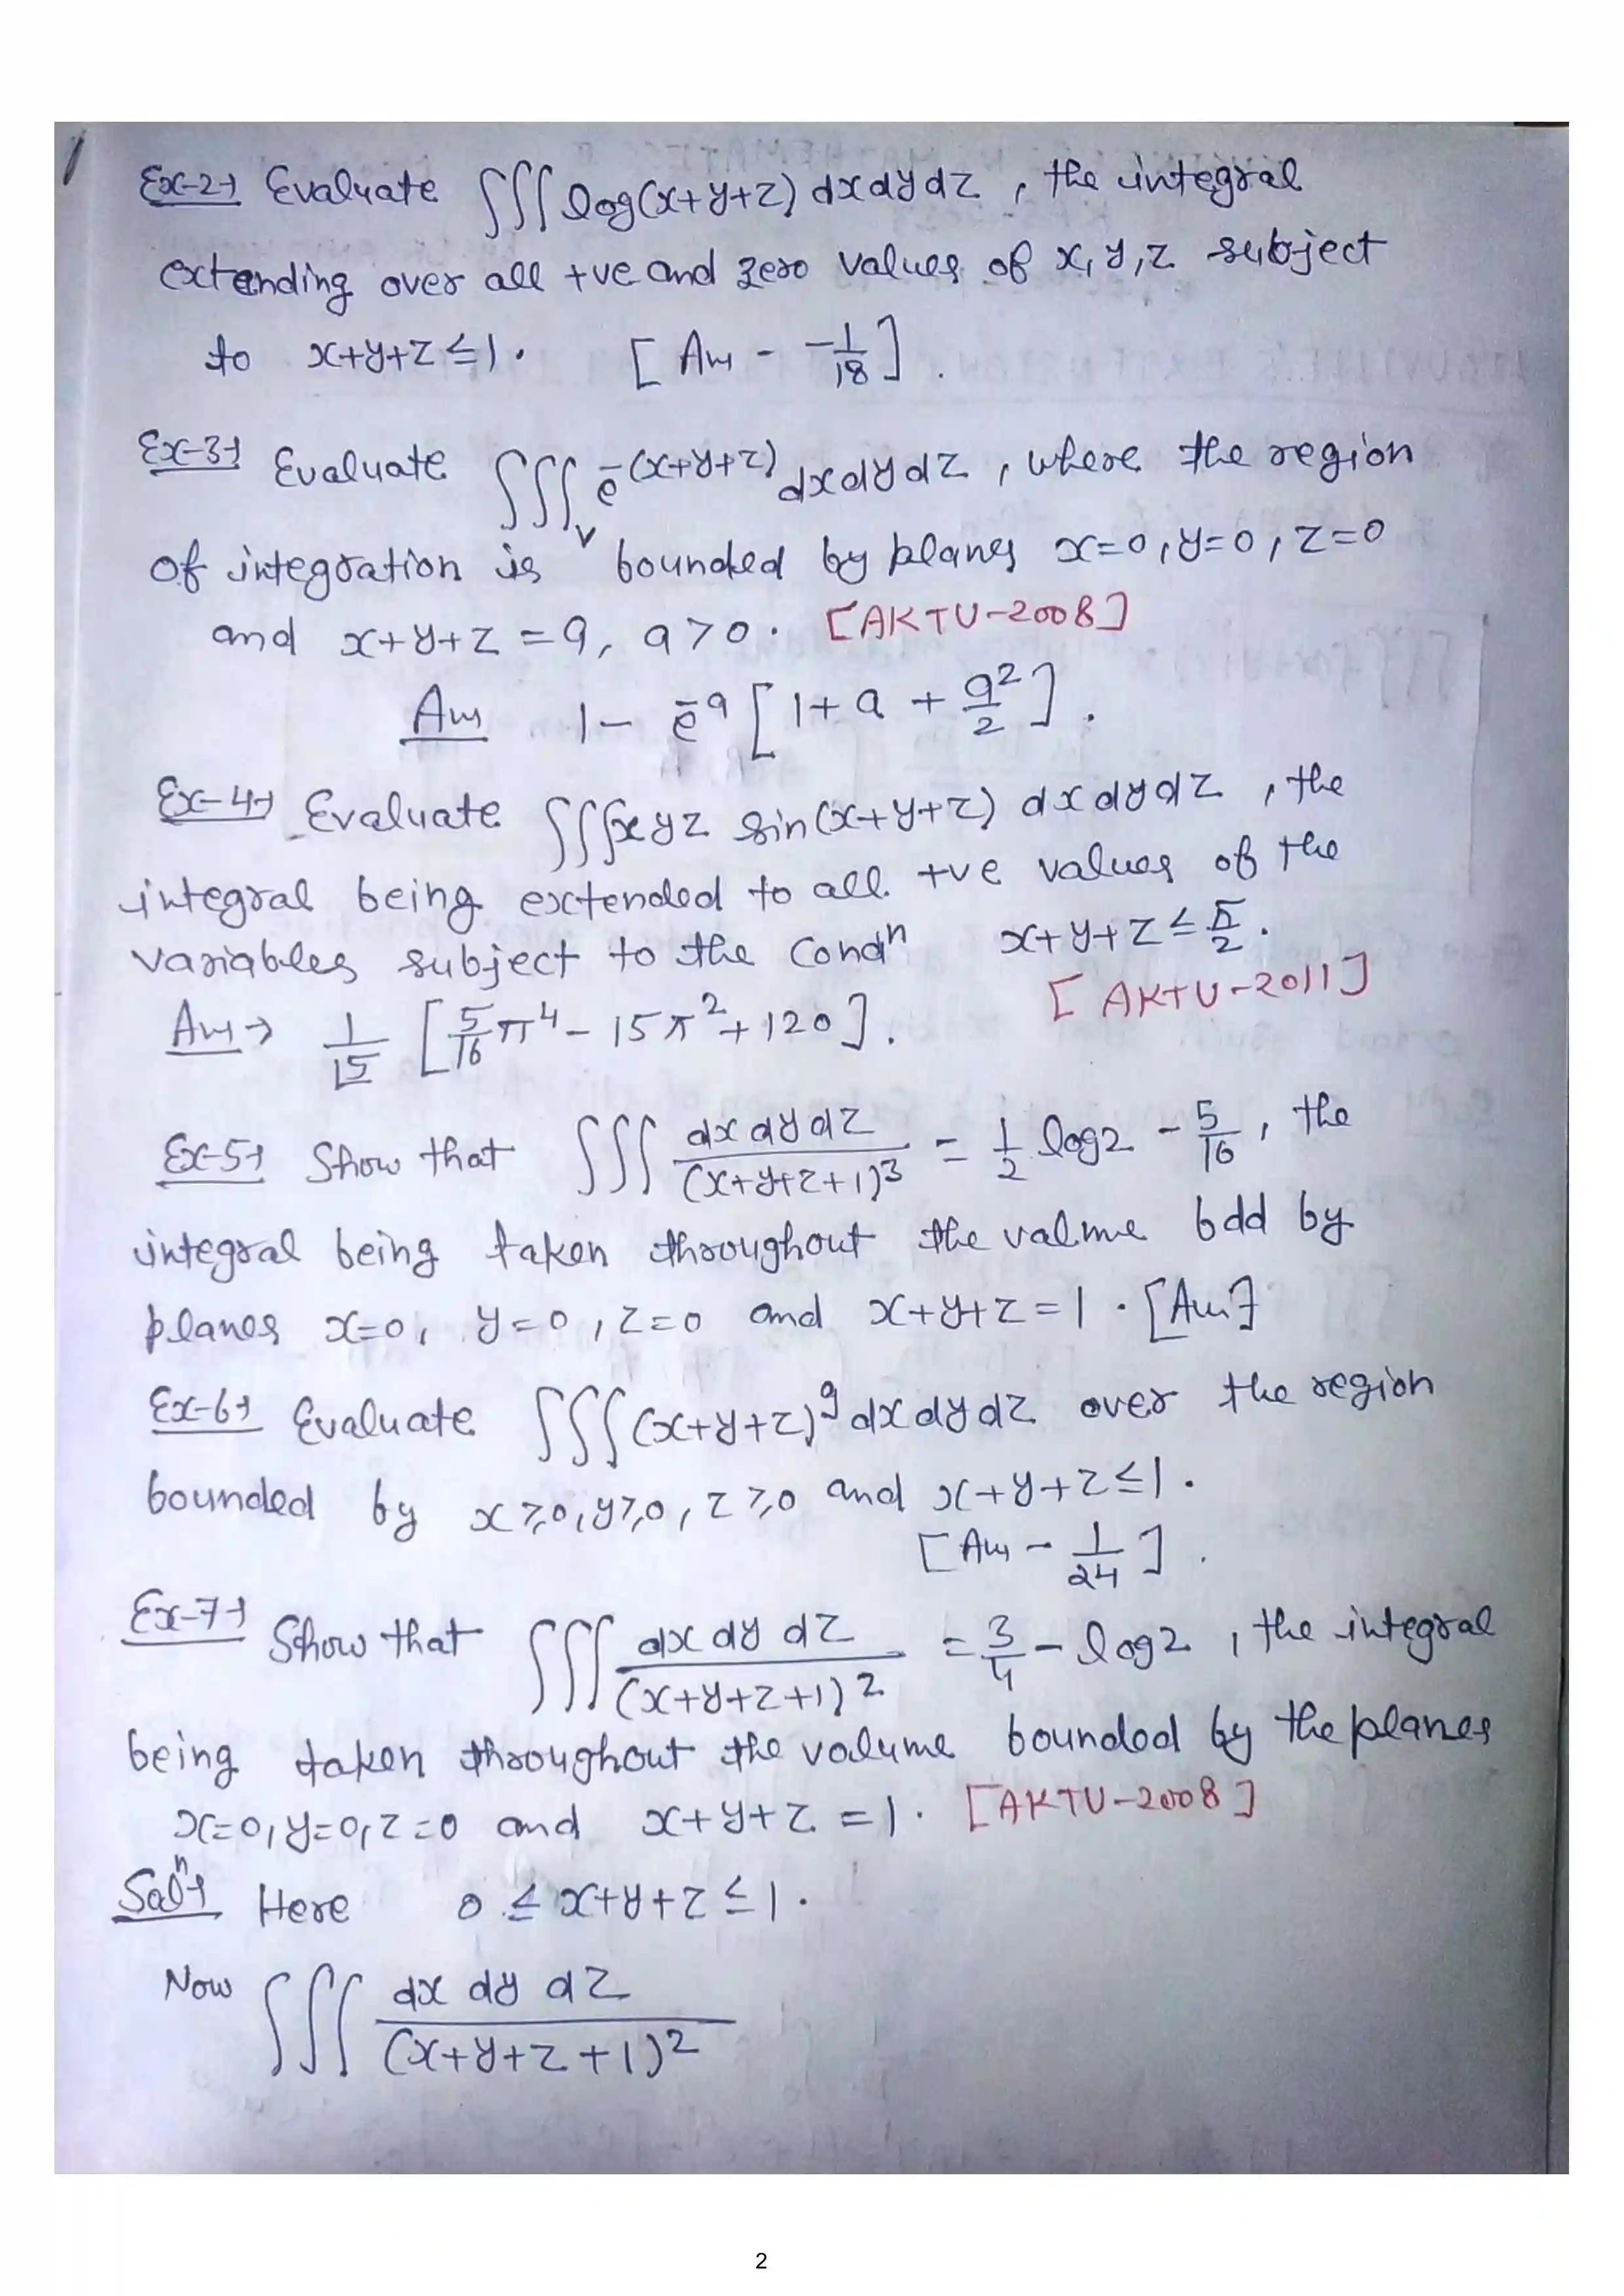 Ex-2→ Evaluate ∫∫∫ log(x+y+z) dxdydz, the integral
extending over all +ve and zero values of x, y, z subject
to x+y+z ≤ 1. [Ans - -1/18].
Ex-3→ Evaluate ∫∫∫_V e^-(x+y+z) dxdydz, where the region
of integration is bounded by planes x=0, y=0, z=0
and x+y+z = a, a>0. [AKTU-2008]
Ans 1 - e^-a [1+a+a²/2].
Ex-4→ Evaluate ∫∫∫ xyz sin(x+y+z) dxdydz, the
integral being extended to all +ve values of the
variables subject to the condⁿ x+y+z ≤ π/2.
[AKTU-2011]
Ans→ 1/|5 [5/16 π⁴ - 15π² + 120].
Ex-5→ Show that ∫∫∫ dxdydz/(x+y+z+1)³ = 1/2 log2 - 5/16, the
integral being taken throughout the valume bdd by
planes x=0, y=0, z=0 and x+y+z=1. [Ans]
Ex-6→ Evaluate ∫∫∫ (x+y+z)⁹ dxdydz over the region
bounded by x≥0, y≥0, z≥0 and x+y+z≤1.
[Ans - 1/24].
Ex-7→ Show that ∫∫∫ dx dy dz/(x+y+z+1)² = 3/4 - log2, the integral
being taken throughout the volume bounded by the planes
x=0, y=0, z=0 and x+y+z=1. [AKTU-2008]
Solⁿ→ Here 0 ≤ x+y+z ≤ 1.
Now ∫∫∫ dx dy dz/(x+y+z+1)²
2